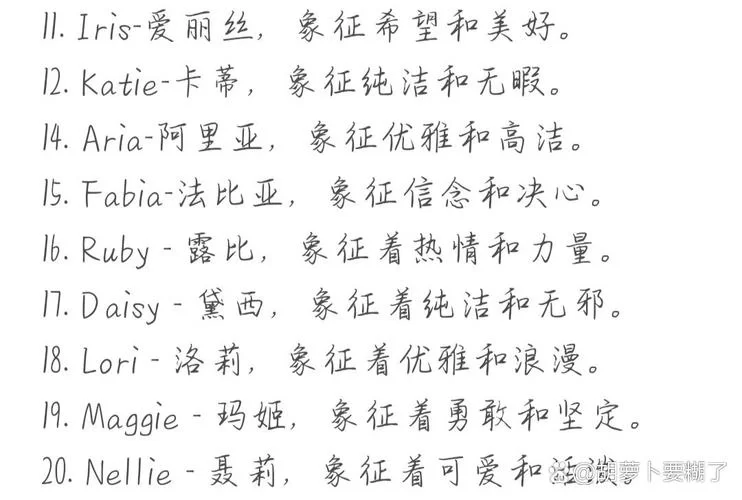 11. Iris-爱丽丝，象征希望和美好。
12. Katie-卡蒂，象征纯洁和无暇。
14. Aria-阿里亚，象征优雅和高洁。
15. Fabia-法比亚，象征信念和决心。
16. Ruby - 露比，象征着热情和力量。
17. Daisy - 黛西，象征着纯洁和无邪。
18. Lori - 洛莉，象征着优雅和浪漫。
19. Maggie - 玛姬，象征着勇敢和坚定。
20. Nellie - 聂莉，象征着可爱和活泼。
@胡萝卜要糊了